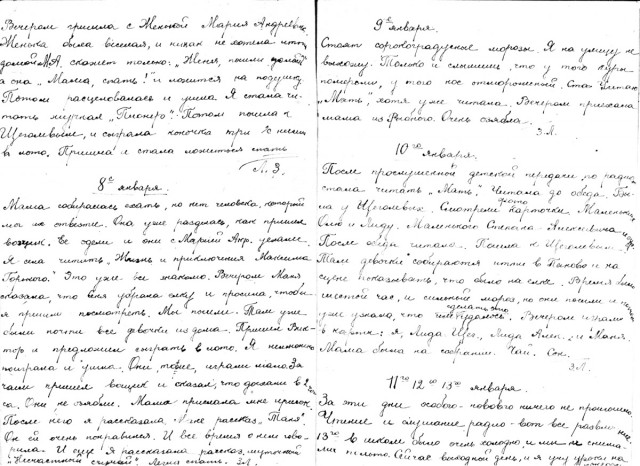 Вечером пришла с Женькой Мария Андреевна.
Женька была веселая, и никак не хотела идти
домой. М.А. скажет только: „Женя, пошли домой"
а она „Мама, спать!" и ложится на подушку.
Потом расцеловалась и ушла. Я стала чи-
тать журнал „Пионер". Потом пошла к
Щеголевым, и сыграла кончика три с ними
в лото. Пришла и стала ложиться спать.
Л. З.
8го января.
Мама собиралась ехать, но нет человека, который
мог их отвезти. Она уже разделась, как пришел
возчик. Её одели и они с Марией Андр. уехали.
Я села читать „Жизнь и приключения Максима
Горького." Это уже все знакомо. Вечером Маня
сказала, что Еня убрала елку и просила, чтобы
я пришла посмотреть. Мы пошли. Там уже
были почти все девочки из дома. Пришел Вик-
тор и предложил сыграть в лото. Я немножко
поиграла и ушла. Они тоже, играли мало. За
чаем пришел возчик и сказал, что доехали в 2 часа.
Они не озябли. Мама прислала мне
После него я рассказала рассказ „Таня".
Он ей очень понравился. И все время о нем гово-
рила. И еще я рассказала рассказ шуточный
"Несчастный случай". Легла спать. З.Л.
9го января.
Стоят сорокоградусные морозы. Я на улицу не
выхожу. Только и слышишь, что у того куры
померзли, у того нос отмороженный. Стала читать
„Мать", хотя уже читала. Вечером приехала
мама из Озябла.
З.Л.
10го января.
После прослушанной детской передачи по радио
стала читать „Мать". Читала до обеда. Бы-
ла у Щеголевых. Смотрели фото карточки. Маленькую
Олю и Лиду. Маленького Степана
После обеда читала. Пошла к Щеголевым.
Там девочки собираются идти в и на
сцене показывать, что было на елке. Время был
шестой час, и сильный мороз, но они пошли и потом
уже узнала, что сделать это не удалось. Вечером играли
в карты: я, Лида Щег., Лида Алек. и Маня.
Мама была на собрании. Чай. Сон.
З.Л.
11го 12го 13го января.
За эти дни особого нового ничего не произошло.
Чтение и слушание радио - вот все развлечение.
13го в школе было очень холодно, и мы не снима-
ли пальто. Сейчас выходной день, и я учу уроки на